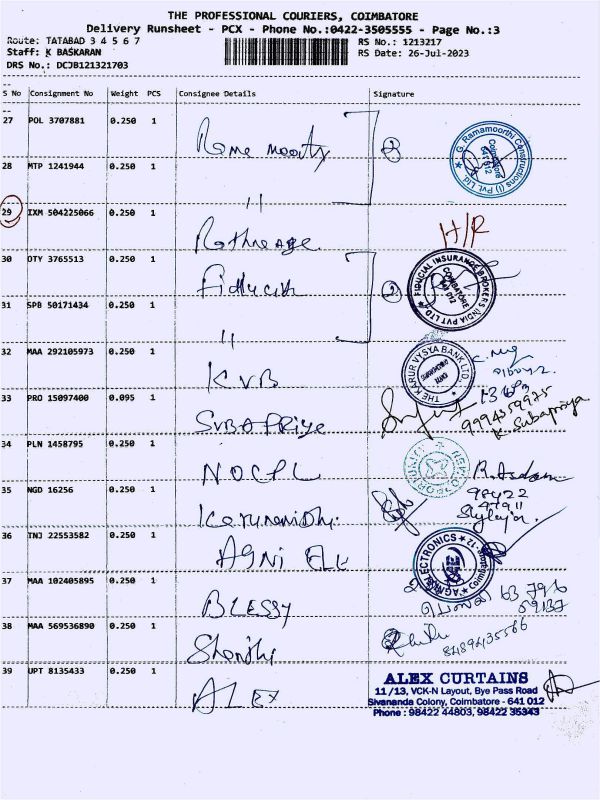 THE PROFESSIONAL COURIERS, COIMBATORE
Delivery Runsheet - PCX - Phone No.:0422-3505555 - Page No.:3
Route: TATABAD 3 4 5 6 7
RS No.: 1213217
Staff: K BASKARAN
RS Date: 26-Jul-2023
DRS No.: DCJB121321703
S No Consignment No Weight PCS Consignee Details Signature
27 POL 3707881 0.250 1
Rama moorty
2
G. Ramamoorthi Constructions (I) Pvt. Ltd. Coimbatore 641 012
28 MTP 1241944 0.250 1
"
29 IXM 504225066 0.250 1
H/R
30 OTY 3765513 0.250 1
2
FIDUCIAL INSURANCE BROKERS INDIA PVT LTD COIMBATORE 641 012
31 SPB 50171434 0.250 1
"
32 MAA 292105973 0.250 1
KVB
THE KARUR VYSYA BANK LTD.
33 PRO 15097400 0.095 1
SUBAPRIYA
9994359975
K. Subapriya
34 PLN 1458795 0.250 1
NOCPL
35 NGD 16256 0.250 1
98422
97911
36 TNJ 22553582 0.250 1
AGNI ELE
AGNI ELECTRONICS Coimbatore-12
37 MAA 102405895 0.250 1
BLESSY
63 796
69137
38 MAA 569536890 0.250 1
Shanthi
39 UPT 8135433 0.250 1
ALEX
ALEX CURTAINS
11/13, VCK-N Layout, Bye Pass Road
Sivananda Colony, Coimbatore - 641 012
Phone : 98422 44803, 98422 35343